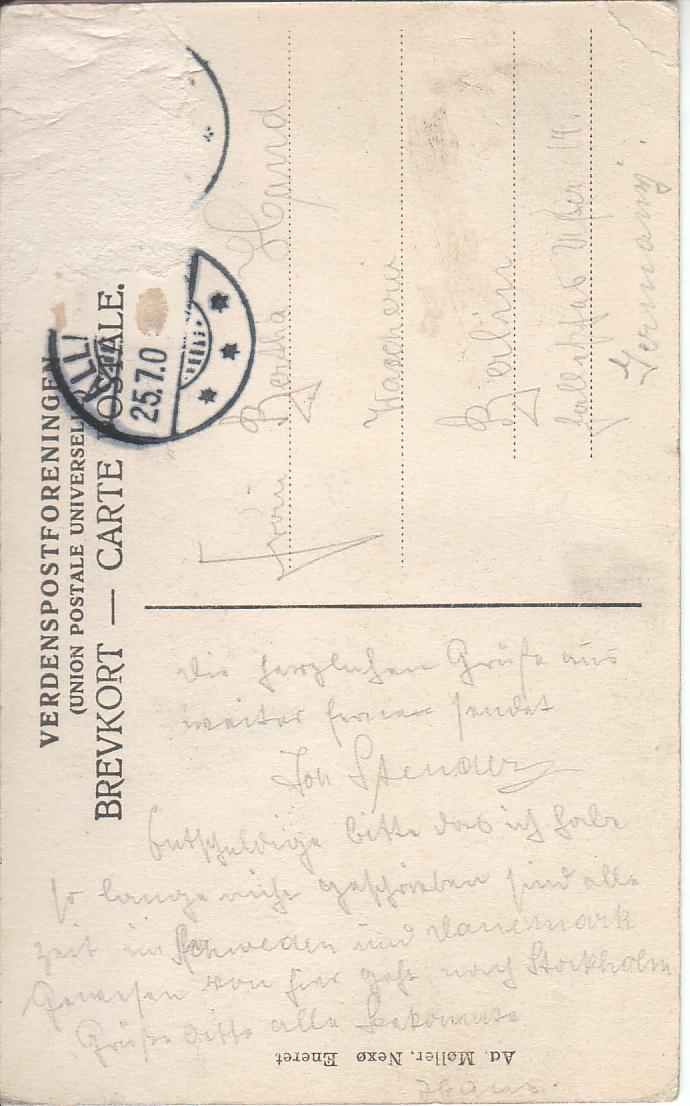 VERDENSPOSTFORENINGEN
(UNION POSTALE UNIVERSELL
BREVKORT — CARTE POSTALE.
ALLI
25.7.0
Frau Bertha Hand
Berlin
Ufer 14.
Germany.
die herzlichen Grüße aus
weiter ferne sendet
Joh Stender
Entschuldige bitte das ich habe
so lange nicht geschrieben sind alle
zeit in Schweden und Danemark
Gewesen von hier geht nach Stockholm
Grüße bitte alle bekannte
Hans.
Ad. Møller, Nexø Eneret